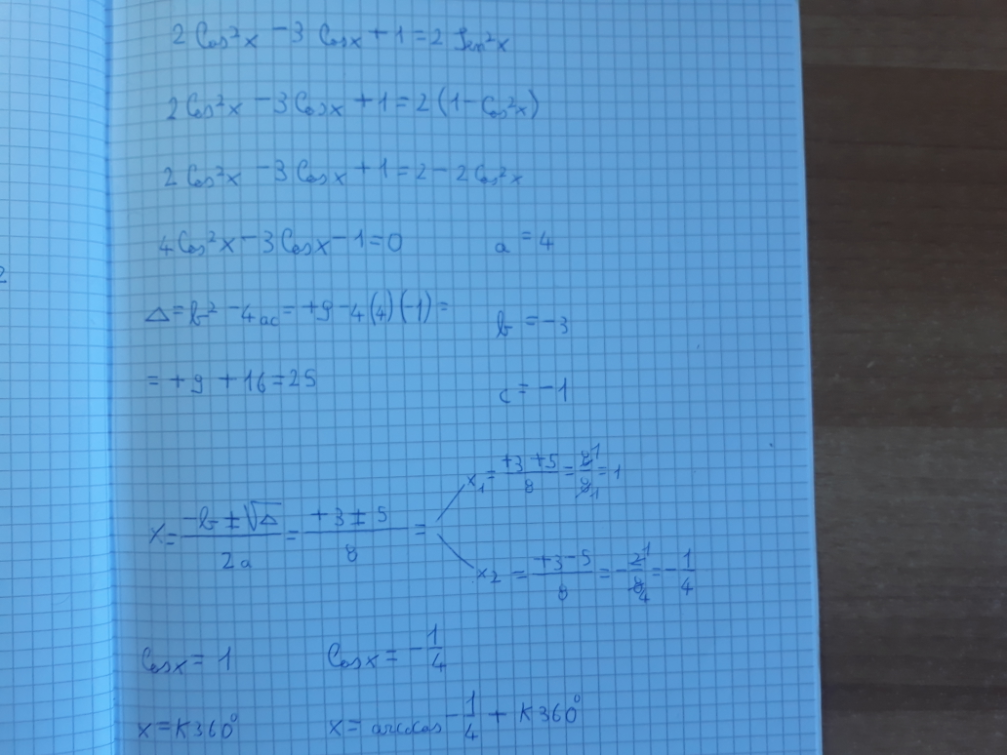 2 Cos²x - 3 Cosx + 1 = 2 Sen²x
2 Cos²x - 3 Cosx + 1 = 2 (1 - Cos²x)
2 Cos²x - 3 Cosx + 1 = 2 - 2 Cos²x
4 Cos²x - 3 Cosx - 1 = 0 a = 4
Δ = b² - 4ac = +9 - 4(4)(-1) =
b = -3
= +9 + 16 = 25
c = -1
x₁ = (+3 + 5)/8 = 8/8 = 1
x = (-b ± √Δ)/2a = (+3 ± 5)/8 =
x₂ = (+3 - 5)/8 = -2/8 = -1/4
Cosx = 1 Cosx = -1/4
x = K360° x = arccos -1/4 + K360°